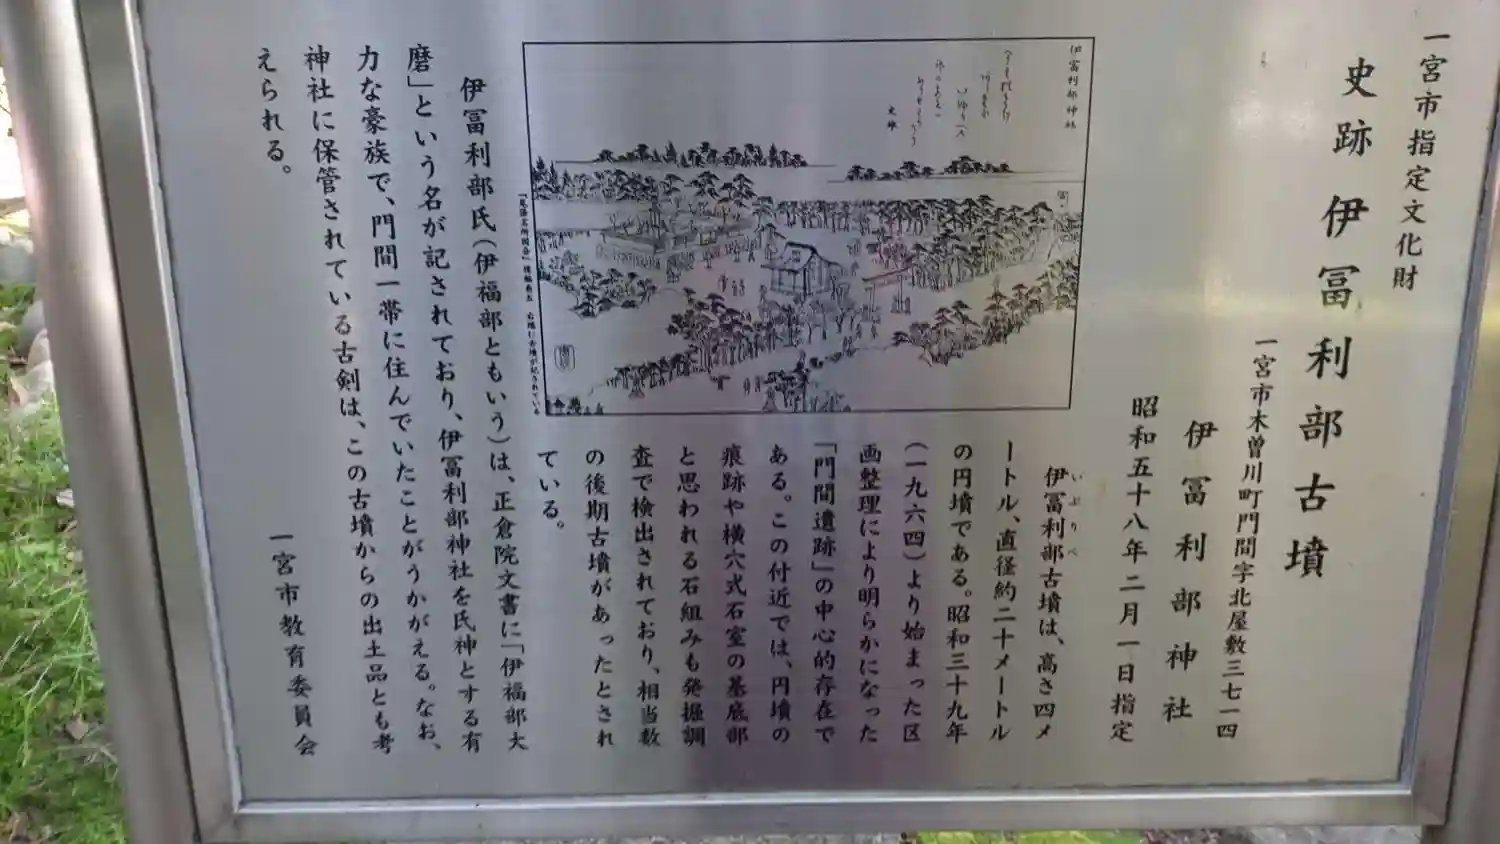 一宮市指定文化財
史跡 伊冨利部古墳
一宮市木曽川町門間字北屋敷三七一四
伊冨利部神社
昭和五十八年二月一日指定
いふりべ
伊冨利部古墳は、高さ四メ
ートル、直径約二十メートル
の円墳である。昭和三十九年
(一九六四)より始まった区
画整理により明らかになった
「門間遺跡」の中心的存在で
ある。この付近では、円墳の
痕跡や横穴式石室の基底部
と思われる石組みも発掘調
査で検出されており、相当数
の後期古墳があったとされ
ている。
伊富利部神社
「尾張名所図会」後編巻五 右端に古墳が記されている
伊冨利部氏(伊福部ともいう)は、正倉院文書に「伊福部大
磨」という名が記されており、伊冨利部神社を氏神とする有
力な豪族で、門間一帯に住んでいたことがうかがえる。なお、
神社に保管されている古剣は、この古墳からの出土品とも考
えられる。
一宮市教育委員会